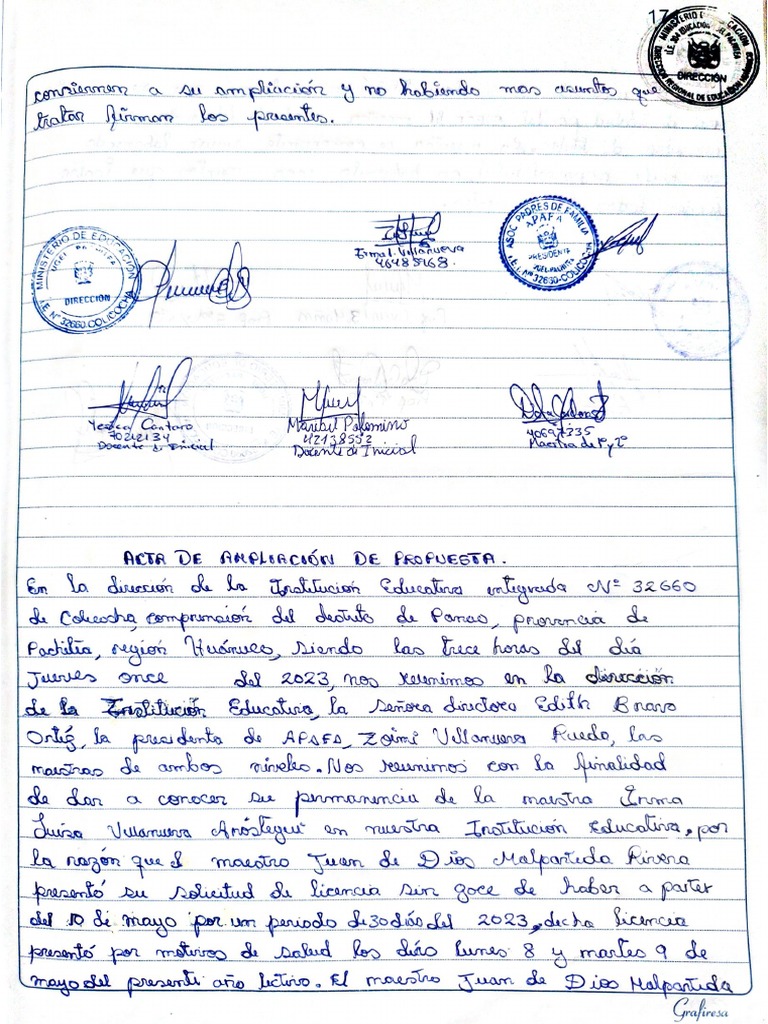 17
MINISTERIO DE EDUCACIÓN
DIRECCIÓN
DIRECCIÓN REGIONAL DE EDUCACIÓN HUÁNUCO
a su ampliación y no habiendo mas asuntos que
tratar firman los presentes.
MINISTERIO DE EDUCACIÓN
UGEL PACHITEA
DIRECCIÓN
I.E. N° 32660-COLICOCHA
Irma L. Villanueva
46485968.
ASOC. PADRES DE FAMILIA
APAFA
PRESIDENTE
UGEL-PACHITEA
I.E.I. N° 32660-COLICOCHA
Yesica Cantaro
70212134
Docente d. Inicial
Maribel Palomino
42138552
Docente de Inicial
40697335
Maestra de 1° y 2°
ACTA DE AMPLIACIÓN DE PROPUESTA.
En la dirección de la Institución Educativa integrada N° 32660
de Colicocha, comprensión del destrito de Panao, provincia de
Pachitia, región Huánuco, siendo las trece horas del día
jueves once del 2023, nos reunimos en la dirección
de la Institución Educativa, la señora directora Edith Bravo
Ortiz, la presidenta de APAFA, Zoimi Villanueva Rueda, las
maestras de ambos niveles. Nos reunimos con la finalidad
de dar a conocer su permanencia de la maestra Irma
Luisa Villanueva Aróstegui en nuestra Institución Educativa, por
la razón que el maestro Juan de Dios Malpartida Rivera
presentó su solicitud de licencia sin goce de haber a parter
del 10 de mayo por un periodo de 30 días del 2023, decha licencia
presentó por motivos de salud los días lunes 8 y martes 9 de
mayo del presente año lectivo. El maestro Juan de Dios Malpartida
Grafiresa